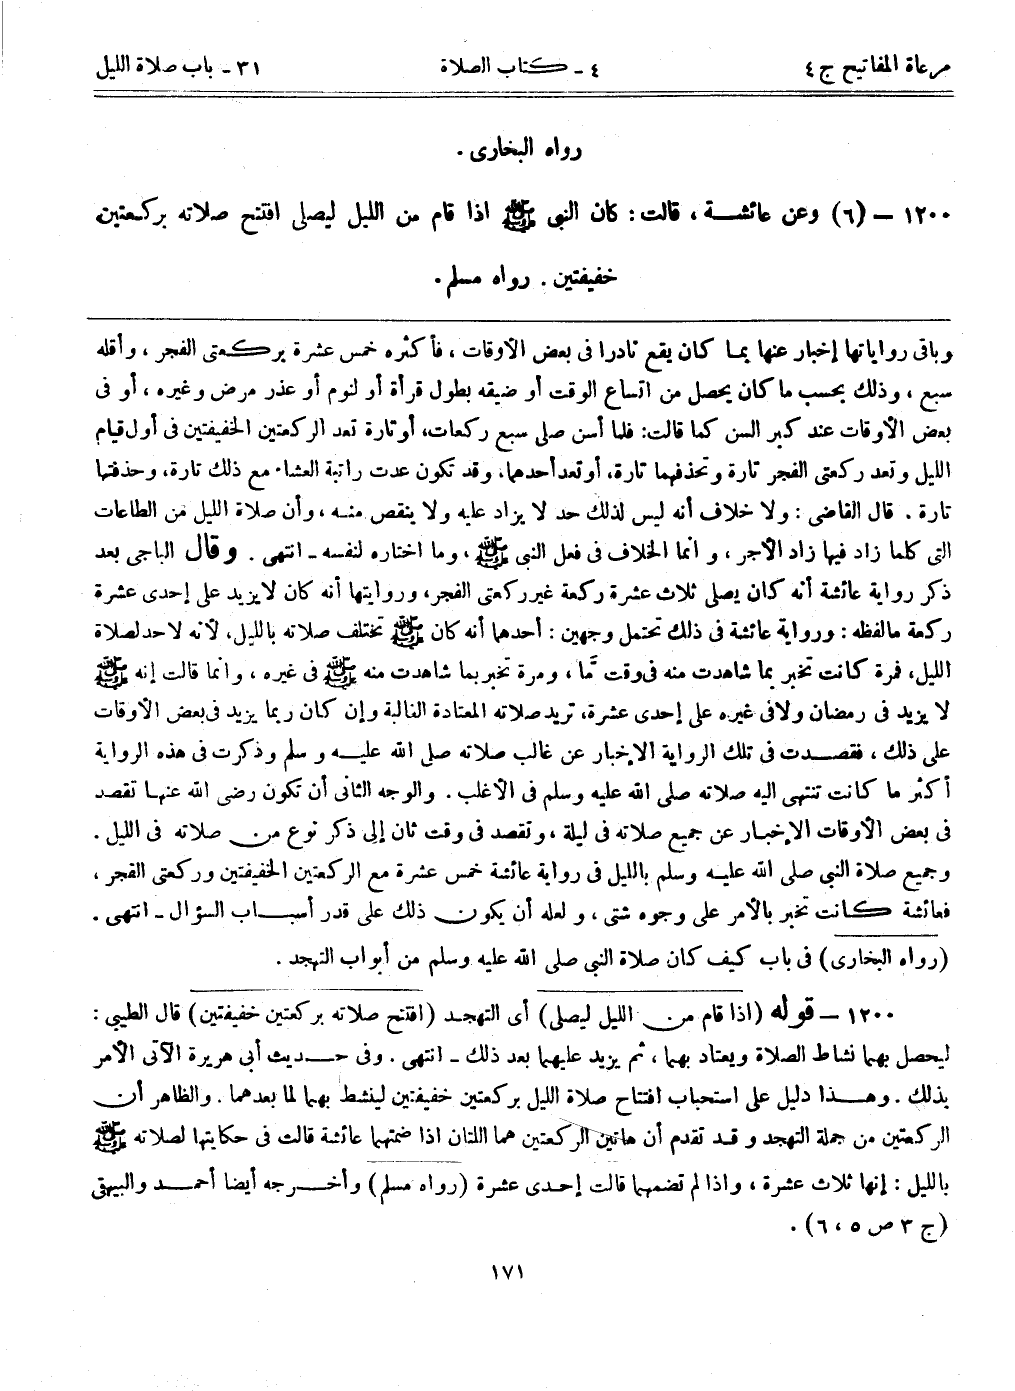 مرعاة المفاتيح ج ٤ ٤ - كتاب الصلاة ٣١ - باب صلاة الليل
رواه البخارى .
١٢٠٠ – (٦) وعن عائشة ، قالت : كان النبى ﷺ اذا قام من الليل ليصلى افتتح صلاته بركعتين
خفيفتين . رواه مسلم .
وباقى رواياتها إخبار عنها بما كان يقع نادرا فى بعض الأوقات ، فأكثره خمس عشرة بركعتى الفجر ، وأقله
سبع ، وذلك بحسب ما كان يحصل من اتساع الوقت أو ضيقه بطول قرأة أو لنوم أو عذر مرض وغيره ، أو فى
بعض الأوقات عند كبر السن كما قالت: فلما أسن صلى سبع ركعات، أوتارة تعد الركعتين الخفيفتين فى أول قيام
الليل وتعد ركعتى الفجر تارة وتحذفهما تارة، أوتعد أحدهما، وقد تكون عدت راتبة العشاء مع ذلك تارة، وحذفتها
تارة . قال القاضى : ولا خلاف أنه ليس لذلك حد لا يزاد عليه ولا ينقص منه ، وأن صلاة الليل من الطاعات
التى كلما زاد فيها زاد الأجر ، و انما الخلاف فى فعل النبى ﷺ ، وما اختاره لنفسه – انتهى . وقال الباجى بعد
ذكر رواية عائشة أنه كان يصلى ثلاث عشرة ركعة غير ركعتى الفجر، وروايتها أنه كان لايزيد على إحدى عشرة
ركعة مالفظه : ورواية عائشة فى ذلك تحتمل وجهين : أحدهما أنه كان ﷺ تختلف صلاته بالليل، لأنه لاحد لصلاة
الليل، فمرة كانت تخبر بما شاهدت منه فى وقت مّا ، ومرة تخبر بما شاهدت منه ﷺ فى غيره ، وانما قالت إنه ﷺ
لا يزيد فى رمضان ولافى غيره على إحدى عشرة، تريد صلاته المعتادة الغالبة وإن كان ربما يزيد فى بعض الأوقات
على ذلك ، فقصدت فى تلك الرواية الإخبار عن غالب صلاته صلى الله عليه و سلم وذكرت فى هذه الرواية
أكثر ما كانت تنتهى اليه صلاته صلى الله عليه وسلم فى الأغلب . والوجه الثانى أن تكون رضى الله عنها تقصد
فى بعض الأوقات الإخبار عن جميع صلاته فى ليلة ، وتقصد فى وقت ثان إلى ذكر نوع من صلاته فى الليل .
وجميع صلاة النبى صلى الله عليه وسلم بالليل فى رواية عائشة خمس عشرة مع الركعتين الخفيفتين وركعتى الفجر ،
فعائشة كانت تخبر بالأمر على وجوه شتى ، و لعله أن يكون ذلك على قدر أسباب السؤال – انتهى .
(رواه البخارى) فى باب كيف كان صلاة النبى صلى الله عليه وسلم من أبواب التهجد .
١٢٠٠ – قوله (اذا قام من الليل ليصلى) أى التهجد (افتتح صلاته بركعتين خفيفتين) قال الطيبى :
ليحصل بهما نشاط الصلاة ويعتاد بهما ، ثم يزيد عليهما بعد ذلك – انتهى . وفى حديث أبى هريرة الآتى الأمر
بذلك . وهذا دليل على استحباب افتتاح صلاة الليل بركعتين خفيفتين لينشط بهما لما بعدهما . والظاهر أن
الركعتين من جملة التهجد و قد تقدم أن هاتين الركعتين هما اللتان اذا ضمتهما عائشة قالت فى حكايتها لصلاته ﷺ
بالليل : إنها ثلاث عشرة ، واذا لم تضمهما قالت إحدى عشرة (رواه مسلم) وأخرجه أيضا أحمد والبيهقى
(ج ٣ ص ٥، ٦) .
١٧١